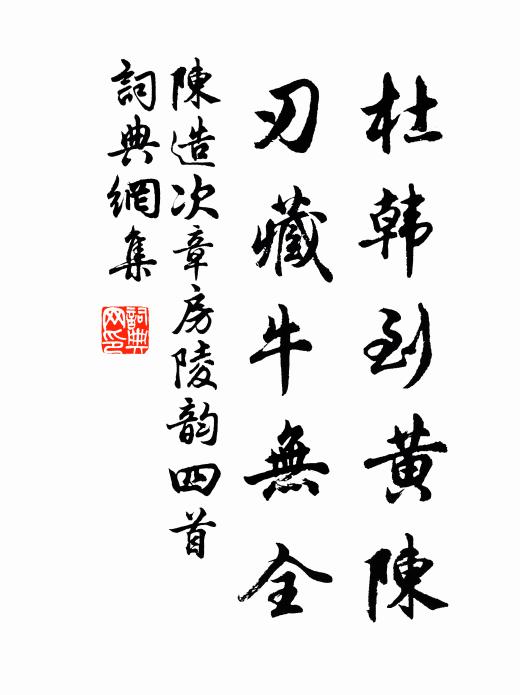 杜韩到黄陳
刃藏牛無全
陳造次章房陵韵四首
詞典網集
詞典网印